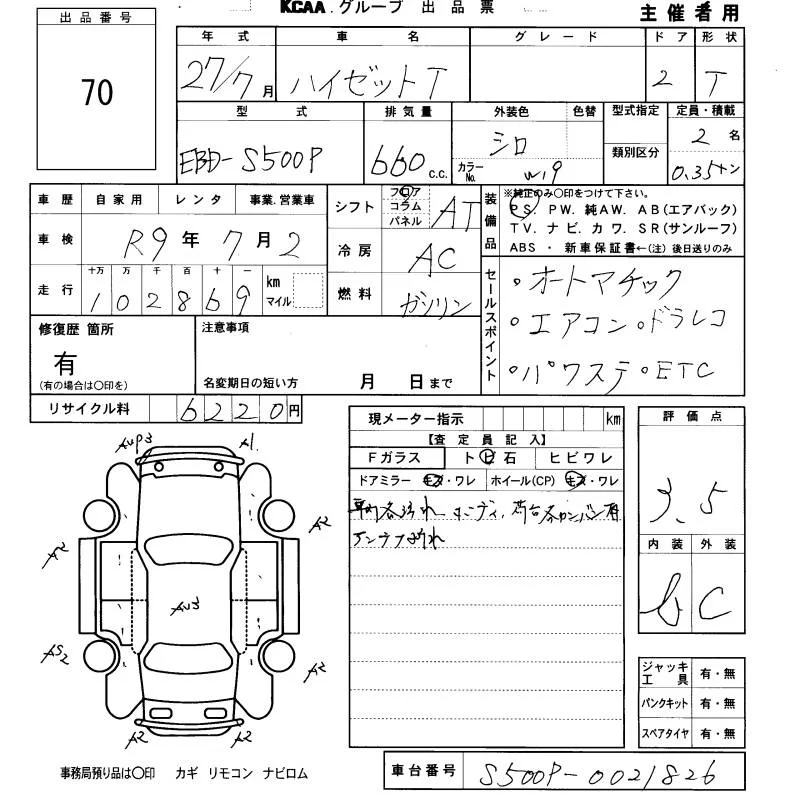 KCAA.グループ 出品票
主催者用
出品番号
70
年式 車名 グレード ドア 形状
27/7月 ハイゼットT 2 T
型式 排気量 外装色 色替 型式指定 定員・積載
EBD-S500P 660 C.C. シロ カラーNo. W19 類別区分 2名 0.35トン
車歴 自家用 レンタ 事業.営業車
車検 R9年7月2
走行 十万 万 千 百 十 一 km マイル
102869
シフト フロア コラム パネル AT
冷房 AC
燃料 ガソリン
装備品
※純正のみ〇印をつけて下さい。
PS. PW. 純AW. AB(エアバック)
TV. ナビ. カワ. SR(サンルーフ)
ABS ・ 新車保証書←(注) 後日送りのみ
セールスポイント
・オートマチック
・エアコン・ドラレコ
・パワステ・ETC
修復歴 箇所
有
(有の場合は〇印を)
注意事項
名変期日の短い方 月 日まで
リサイクル料 6220円
現メーター指示 km
【査定員記入】
Fガラス トビ石 ヒビワレ
ドアミラー キズ・ワレ ホイール(CP) キズ・ワレ
アンテナ折れ
評価点
3.5
内装 外装
b C
ジャッキ工具 有・無
パンクキット 有・無
スペアタイヤ 有・無
A1
A2
A2
AU3
A2
A2
A2
事務局預り品は〇印 カギ リモコン ナビロム
車台番号 S500P-0021826